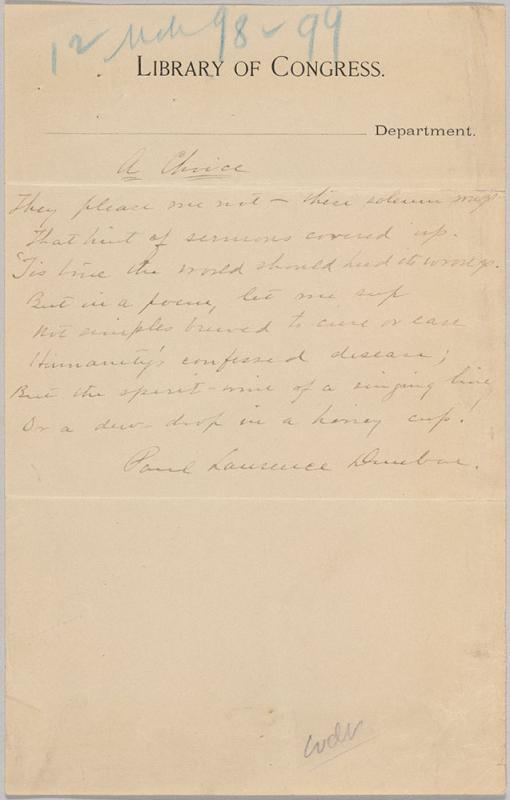 98-99
LIBRARY OF CONGRESS.
Department.
A Choice
They please me not - these solemn songs
That hint of sermons covered up.
'Tis true the world should heed its wrongs.
But in a poem, let me sup
Not simples brewed to cure or ease
Humanity's confessed disease;
But the spirit-wine of a singing line
Or a dew-drop in a honey cup!
Paul Laurence Dunbar.